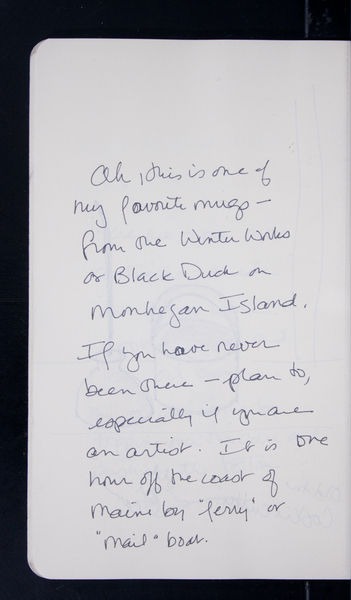 Ah, this is one of
my favorite mugs –
from the Winter Works
or Black Duck on
Monhegan Island.
If you have never
been there – plan to,
especially if you are
an artist. It is one
hour off the coast of
Maine by "ferry" or
"mail" boat.